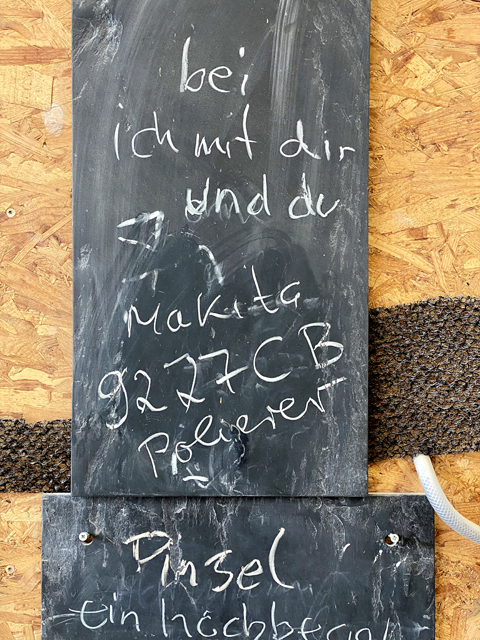 bei
ich mit dir
und du
Makita
9227CB
Polierer
Pinsel
ein hochbegan